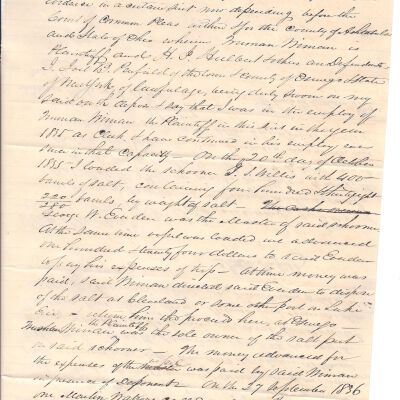 evidence in a certain suit now depending before the
Court of Common Pleas within & for the County of Ashtabula
and State of Ohio wherein Truman Wiman is
Plaintiff and H. J. Hulbert & others are Defendants
I. Joel B. Penfield of the town & County of Oswego & State
of New York of lawful age, being duly sworn on my
said oath depose & say that I was in the employ of
Truman Wiman the Plaintiff in this suit in the year
1835 as Clerk & have continued in his employ ever
since in that capacity - On the 20th day of October
1835 I loaded the schooner J. S. Willis with 400
barrels of salt, containing four hundred & thirty eight
220/280 barrels by weight of salt -
George W. was the Master of said schooner
At the same time vessel was loaded we advanced
one hundred & twenty four dollars to said
to pay his expenses of trip - at time money was
paid, said Wiman directed said to dispose
of the salt at Cleveland or some other port on Lake
Erie - return him the proceeds here, at Oswego -
Truman Wiman the Plaintiff was the sole owner of the salt put
on said schooner - The money advanced for
the expenses of the was paid by said Wiman
in presence of deponent On the 27 September 1836
one